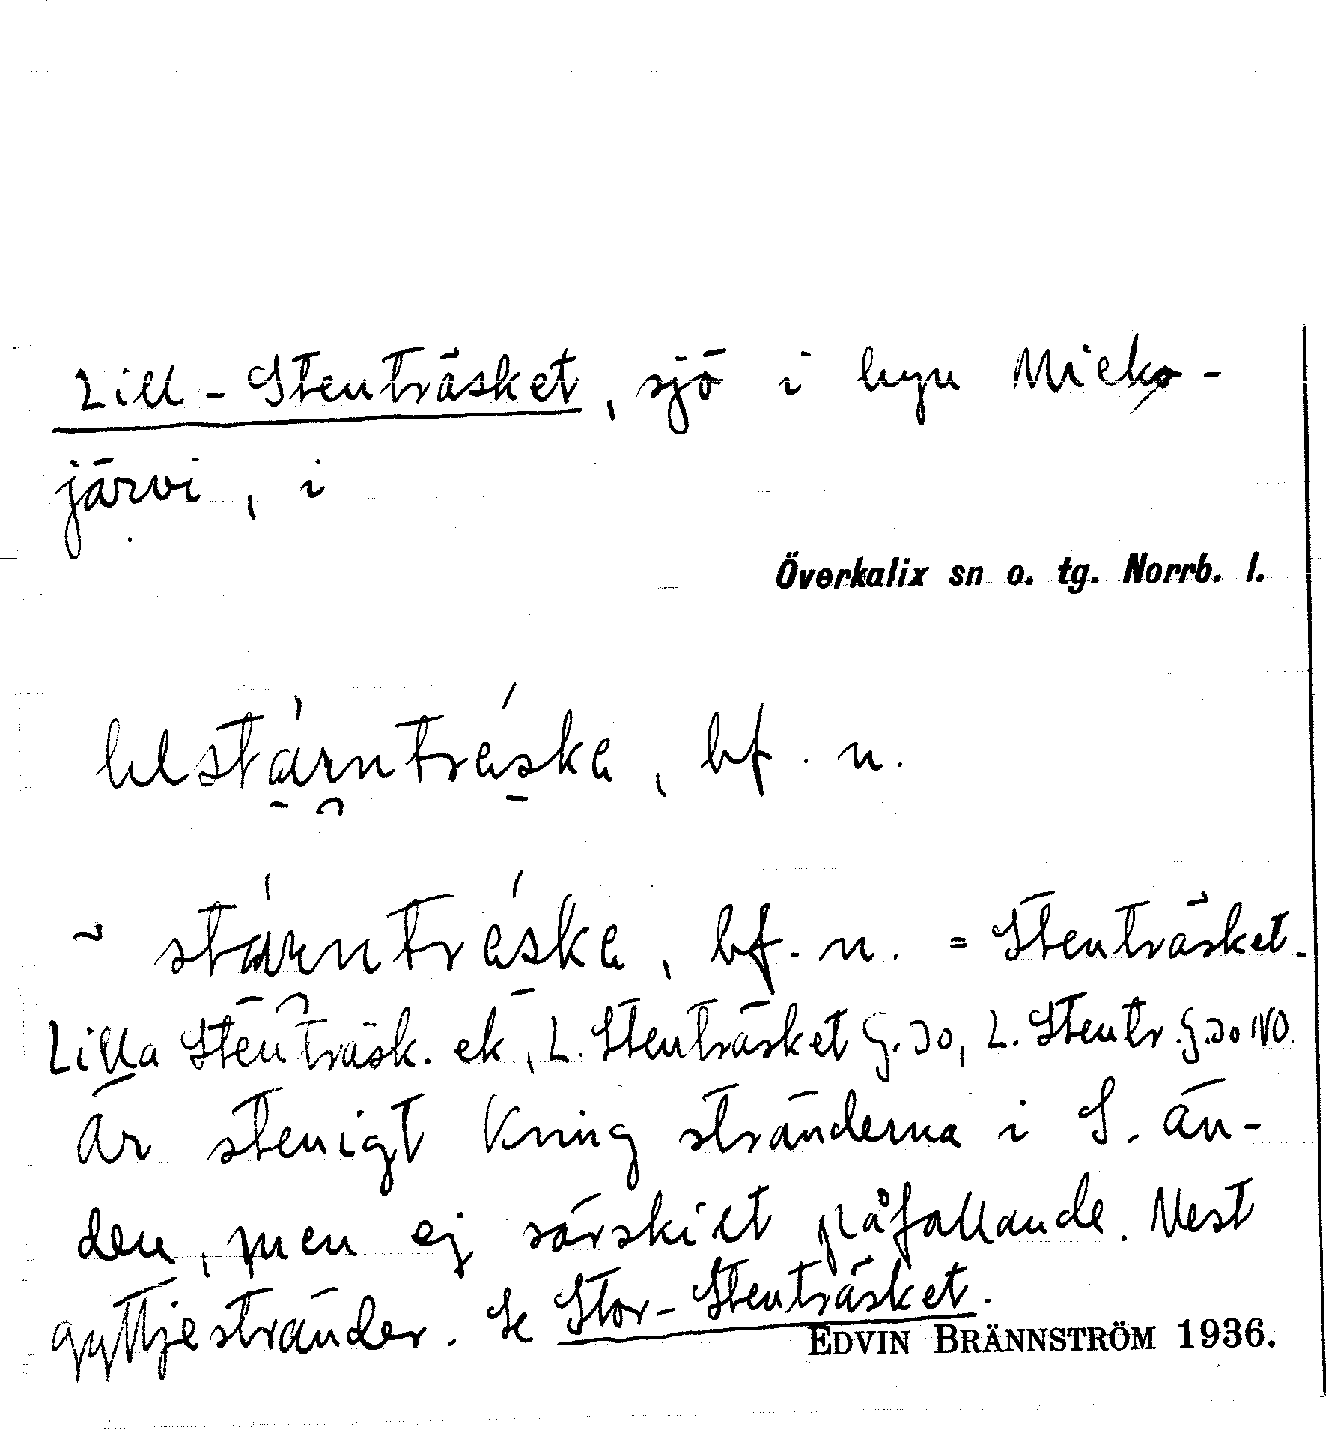 Lill-Stenträsket, sjö i byn Mieko-
järvi, i
Överkalix sn o. tg. Norrb. l.
bf. n.
~ bf. n. = Stenträsket.
Lilla Stenträsk. ek, L. Stenträsket G. 30, L. Stentr. G. 30 NO.
Är stenigt kring stränderna i S. än-
den, men ej särskilt påfallande. Mest
gyttjestränder. Se Stor-Stenträsket.
EDVIN BRÄNNSTRÖM 1936.